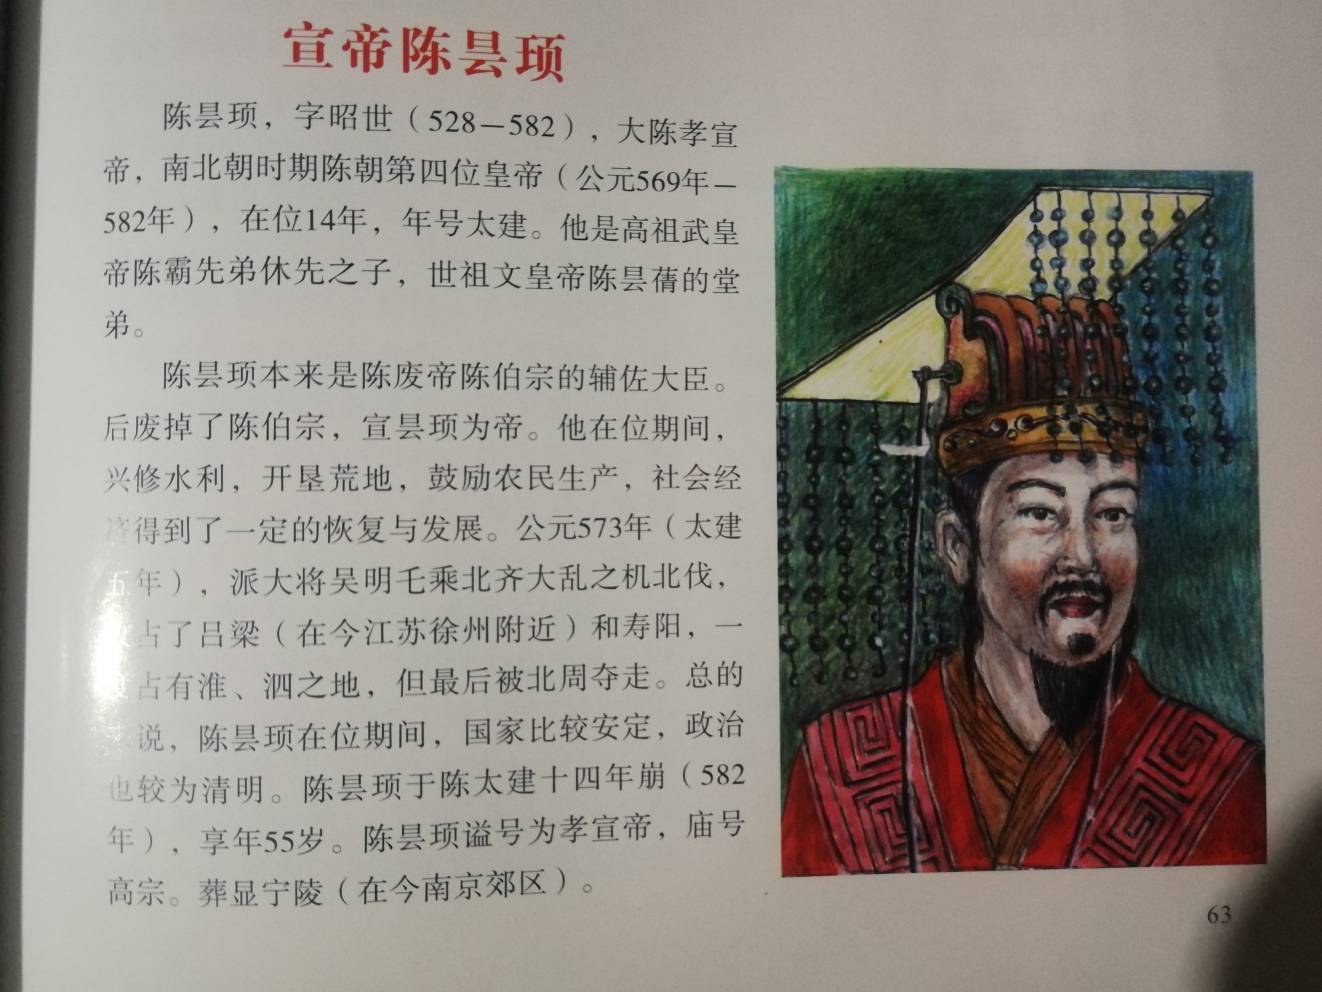 宣帝陈昙顼
陈昙顼，字昭世（528—582），大陈孝宣
帝，南北朝时期陈朝第四位皇帝（公元569年—
582年），在位14年，年号太建。他是高祖武皇
帝陈霸先弟休先之子，世祖文皇帝陈昙蒨的堂
弟。
陈昙顼本来是陈废帝陈伯宗的辅佐大臣。
后废掉了陈伯宗，宣昙顼为帝。他在位期间，
兴修水利，开垦荒地，鼓励农民生产，社会经
济得到了一定的恢复与发展。公元573年（太建
五年），派大将吴明乇乘北齐大乱之机北伐，
占了吕梁（在今江苏徐州附近）和寿阳，一
占有淮、泗之地，但最后被北周夺走。总的
说，陈昙顼在位期间，国家比较安定，政治
也较为清明。陈昙顼于陈太建十四年崩（582
年），享年55岁。陈昙顼谥号为孝宣帝，庙号
高宗。葬显宁陵（在今南京郊区）。
63